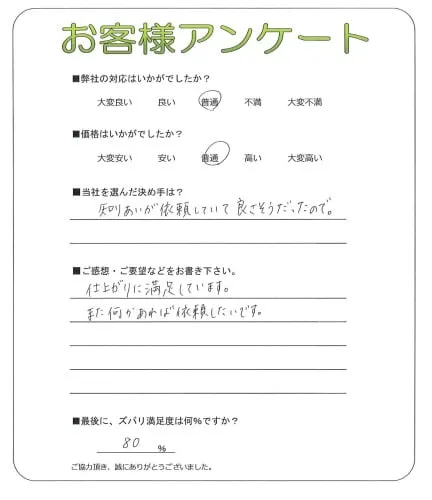 お客様アンケート
■弊社の対応はいかがでしたか？
大変良い 良い 普通 不満 大変不満
■価格はいかがでしたか？
大変安い 安い 普通 高い 大変高い
■当社を選んだ決め手は？
知りあいが依頼していて良さそうだったので。
■ご感想・ご要望などをお書き下さい。
仕上がりに満足しています。
また何かあれば依頼したいです。
■最後に、ズバリ満足度は何％ですか？
80 ％
ご協力頂き、誠にありがとうございました。